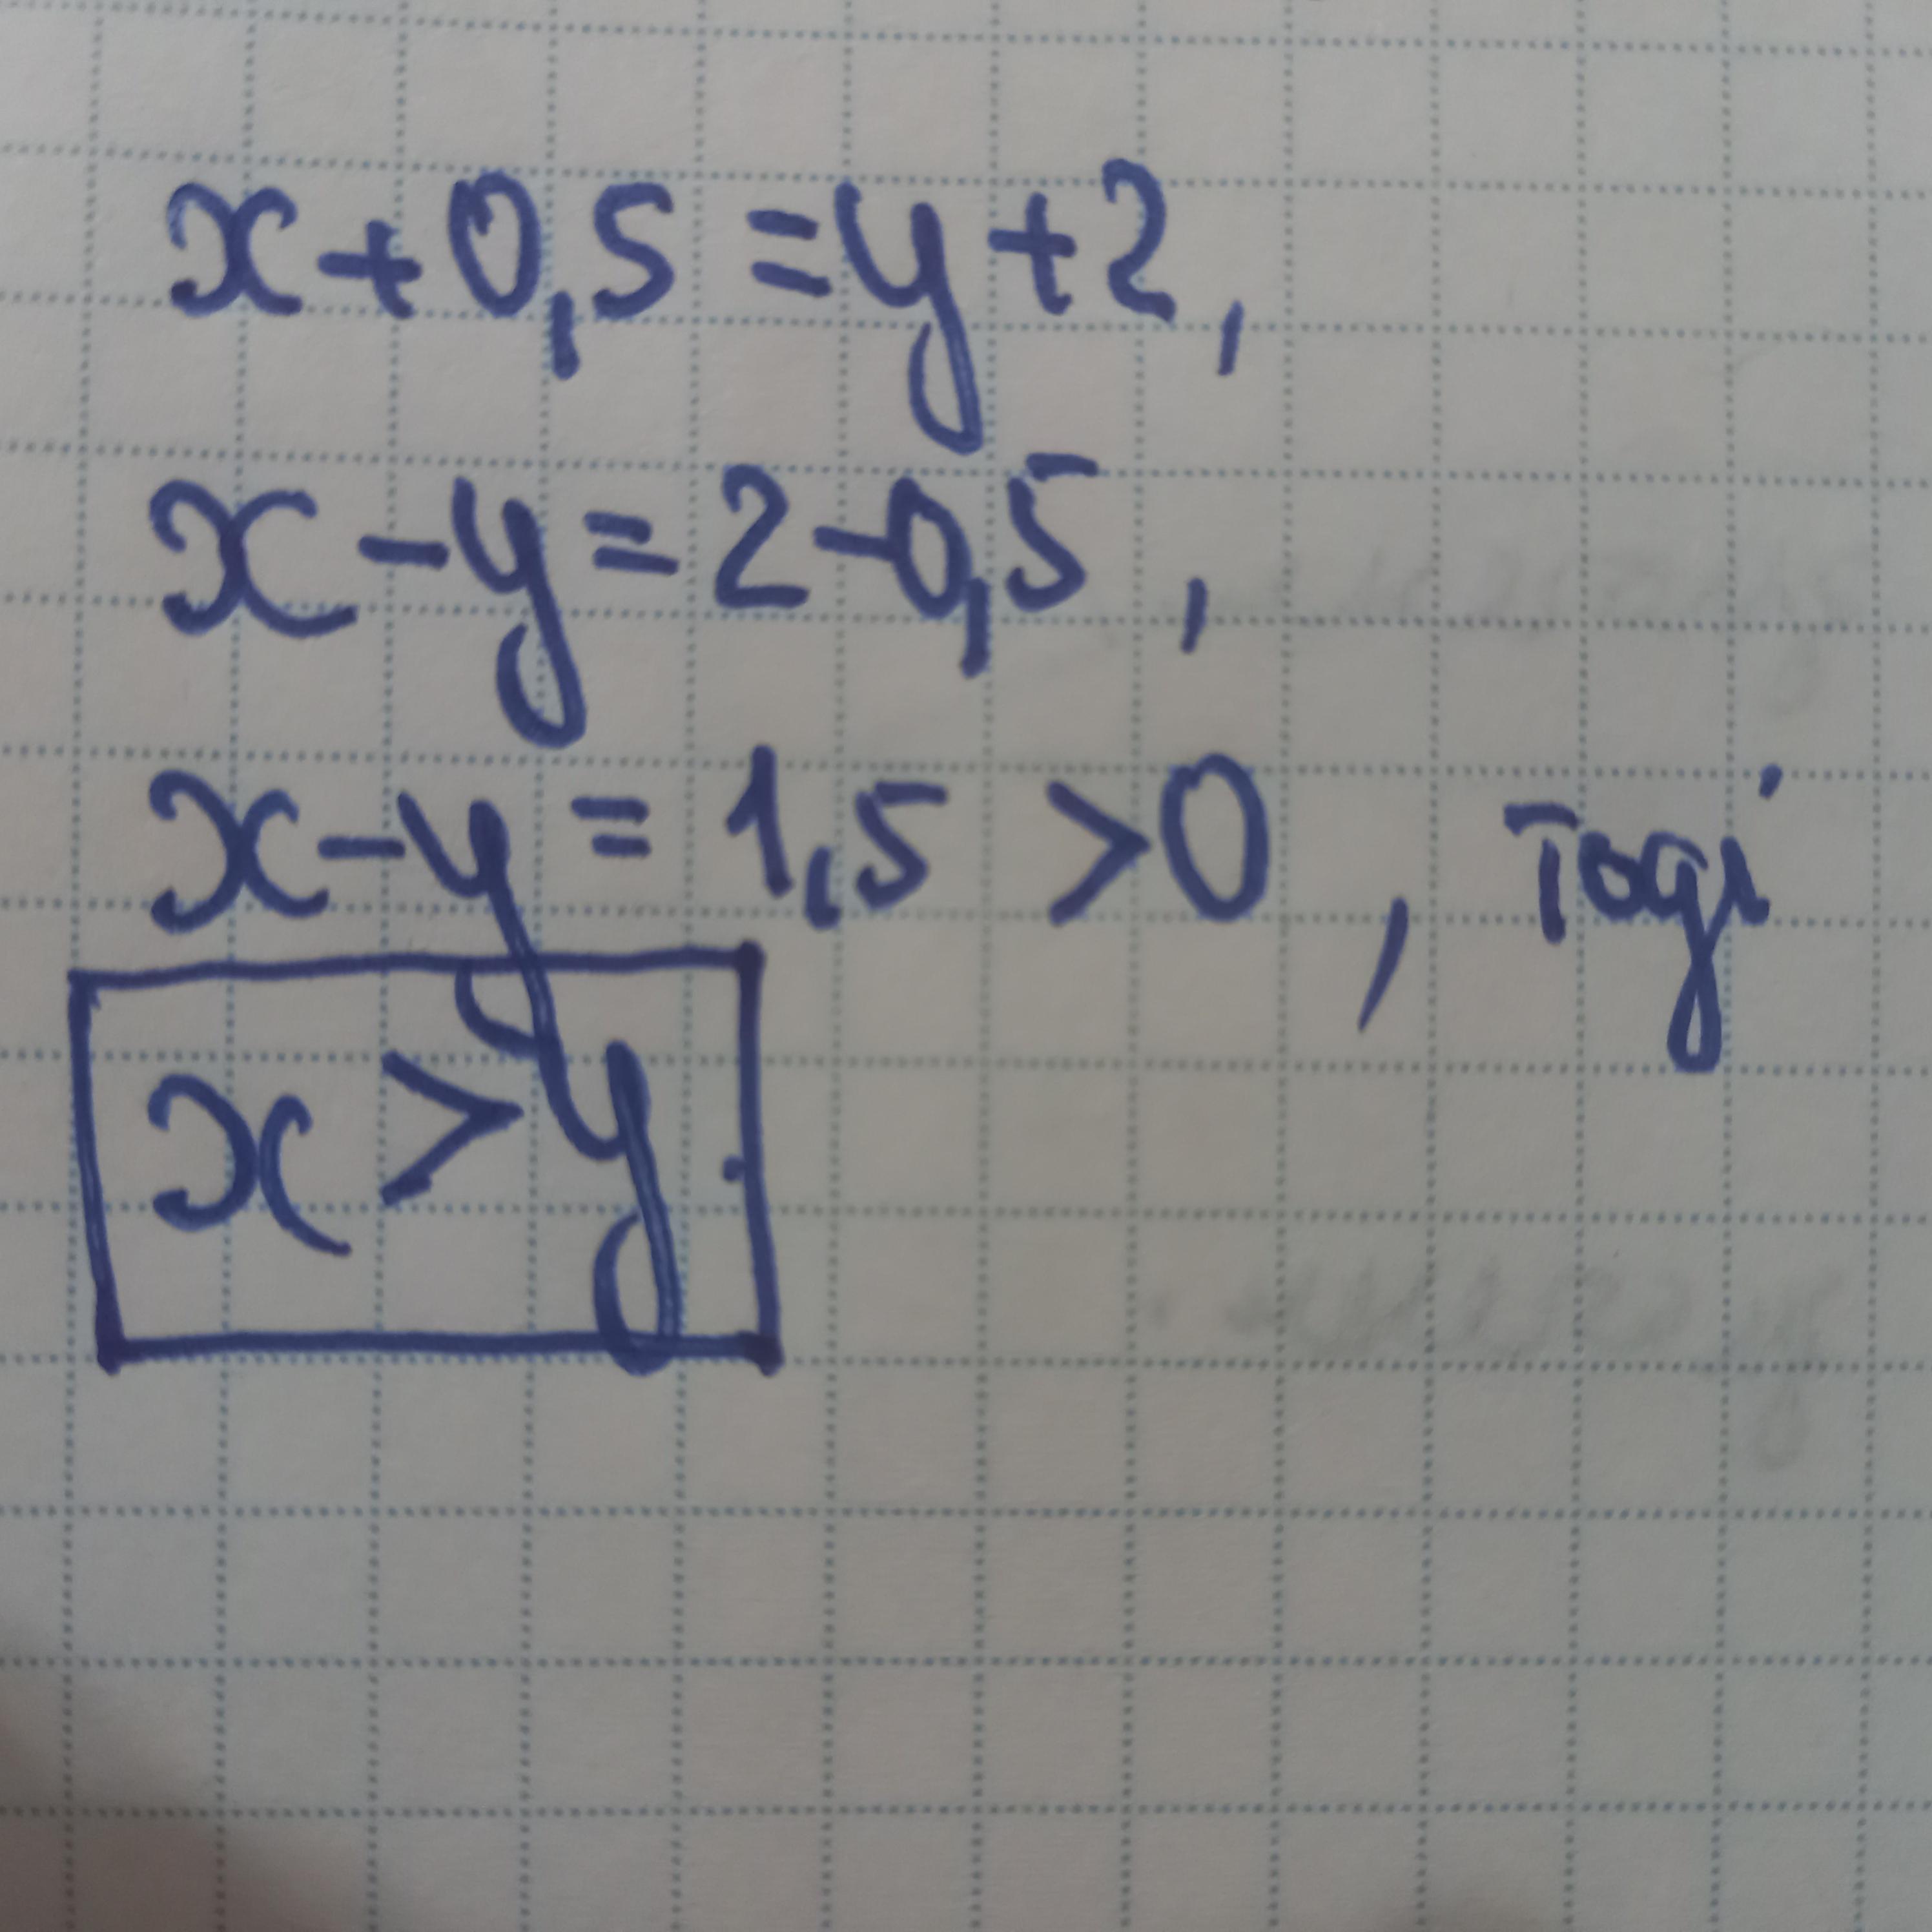 x+0,5=y+2,
x-y=2-0,5,
x-y=1,5>0, Тоді
x>y.